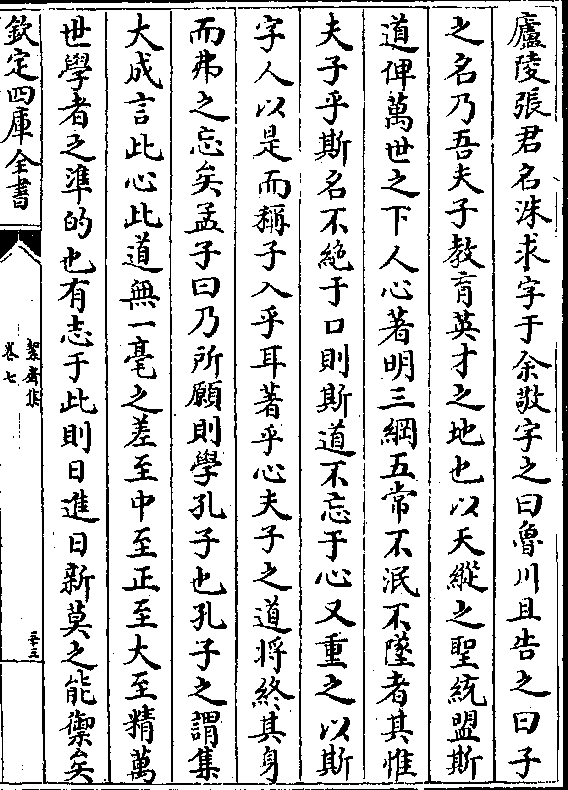 廬陵張君名洙求字于余敬字之曰魯川且告之曰子
之名乃吾夫子教育英才之地也以天縱之聖統盟斯
道俾萬世之下人心著明三綱五常不泯不墜者其惟
夫子乎斯名不絶于口則斯道不忘于心又重之以斯
字人以是而稱子入乎耳著乎心夫子之道將終其身
而弗之忘矣孟子曰乃所願則學孔子也孔子之謂集
大成言此心此道無一毫之差至中至正至大至精萬
世學者之準的也有志于此則日進日新莫之能禦矣
欽定四庫全書
絜齋集
卷七
五十三